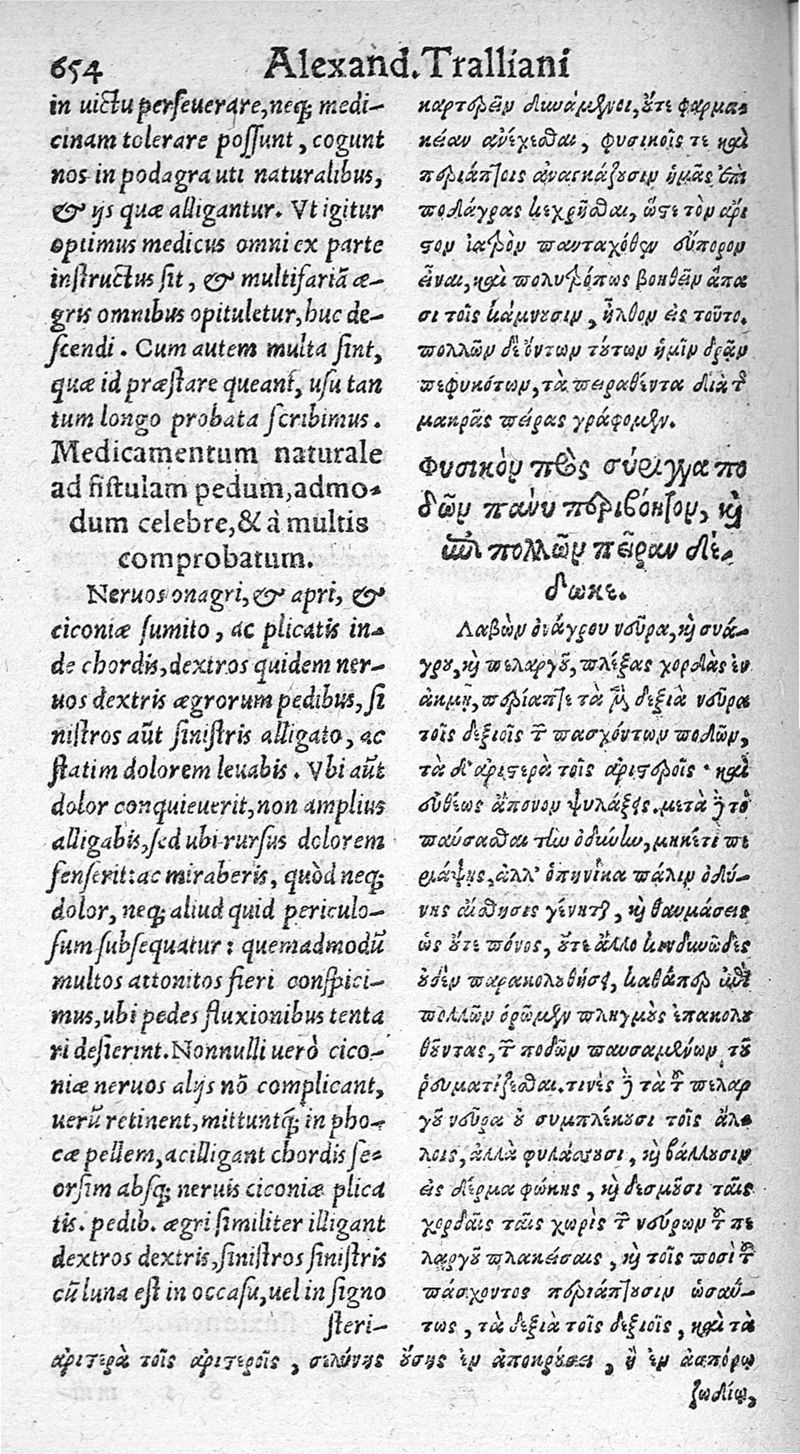 654 Alexand. Tralliani
in uictu perseuerare, neq; medi-
cinam tolerare possunt, cogunt
nos in podagra uti naturalibus,
& ijs quæ alligantur. Vt igitur
optimus medicus omni ex parte
instructus sit, & multifariã æ-
gris omnibus opituletur, huc de-
scendi. Cum autem multa sint,
quæ id præstare queant, usu tan
tum longo probata scribimus.
Medicamentum naturale
ad fistulam pedum, admo-
dum celebre, & à multis
comprobatum.
Neruos onagri, & apri, &
ciconiæ sumito, ac plicatis in-
de chordis, dextros quidem ner-
uos dextris ægrorum pedibus, si
nistros aũt sinistris alligato, ac
statim dolorem leuabis. Vbi aũt
dolor conquieuerit, non amplius
alligabis, sed ubi rursus dolorem
senserit: ac miraberis, quòd neq;
dolor, neq; aliud quid periculo-
sum subsequatur: quemadmodũ
multos attonitos fieri conspici-
mus, ubi pedes fluxionibus tenta
ri desierint. Nonnulli uerò cico-
niæ neruos alijs nõ complicant,
uerũ retinent, mittuntq; in pho-
cæ pellem, ac illigant chordis se-
orsim absq; neruis ciconiæ plica
tis. pedib. ægri similiter illigant
dextros dextris, sinistros sinistris
cũ luna est in occasu, uel in signo
steri-
καρτερεῖν δυνάμενοι, οὔτε φαρμα-
κείαν ἀνέχεσθαι, φυσικοῖς τε καὶ
περιάπτοις ἀναγκάζουσιν ἡμᾶς ἐπὶ
ποδάγρας κεχρῆσθαι, ὥστε τὸν ἄρι
στον ἰατρὸν πανταχόθεν εὔπορον
εἶναι, καὶ πολυτρόπως βοηθεῖν ἅπα
σι τοῖς κάμνουσιν, ἦλθον εἰς τοῦτο.
πολλῶν δὲ ὄντων τούτων ἡμῖν δρᾶν
πεφυκότων, τὰ πειραθέντα διὰ τῆς
μακρᾶς πείρας γράφομεν.
Φυσικὸν πρὸς σύριγγα πο
δῶν πάνυ περιβόητον, καὶ
ὑπὸ πολλῶν πεῖραν δέ-
δωκε.
Λαβὼν ὀνάγρου νεῦρα, καὶ συά-
γρου, καὶ πελαργοῦ, πλέξας χορδὰς ἐν
ἀκμῇ, περίαπτε τὰ μὲν δεξιὰ νεῦρα
τοῖς δεξιοῖς τῶν πασχόντων ποδῶν,
τὰ δ' ἀριστερὰ τοῖς ἀριστεροῖς· καὶ
εὐθέως ἄπονον φυλάξεις. μετὰ δὲ τὸ
παύσασθαι τὴν ὀδύνην, μηκέτι πε
ριάψῃς, ἀλλ' ὁπηνίκα πάλιν ὀδύ-
νης αἴσθησις γένηται, καὶ θαυμάσεις
ὡς οὔτε πόνος, οὔτε ἄλλο κινδυνῶδες
οὐδὲν παρακολουθήσει, καθάπερ ἐπὶ
πολλῶν ὁρῶμεν πληγμοὺς ἐπακολου
θοῦντας, τῶν ποδῶν παυσαμένων τοῦ
ῥευματίζεσθαι. τινὲς δὲ τὰ τῶν πελαρ
γοῦ νεῦρα οὐ συμπλέκουσι τοῖς ἄλ-
λοις, ἀλλὰ φυλάττουσι, καὶ βάλλουσιν
εἰς δέρμα φώκης, καὶ δεσμοῦσι ταῖς
χορδαῖς ταῖς χωρὶς τῶν νεύρων τοῦ πε
λαργοῦ πλακείσαις, καὶ τοῖς ποσὶ τοῦ
πάσχοντος περιάπτουσιν ὡσαύ-
τως, τὰ δεξιὰ τοῖς δεξιοῖς, καὶ τὰ
ἀριστερὰ τοῖς ἀριστεροῖς, σελήνης οὔσης ἐν ἀποκρούσει, ἢ ἐν ἀσπόρῳ
ζωδίῳ,